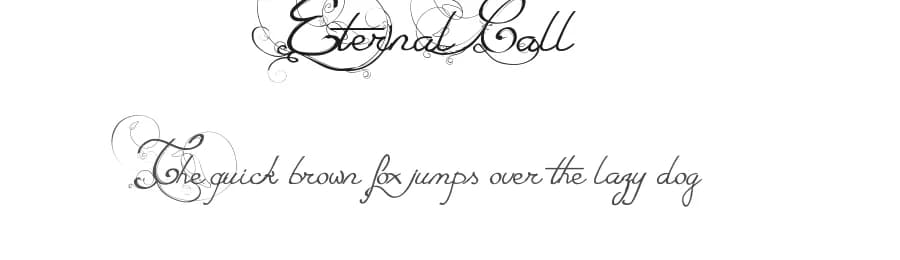 Eternal Call
The quick brown fox jumps over the lazy dog